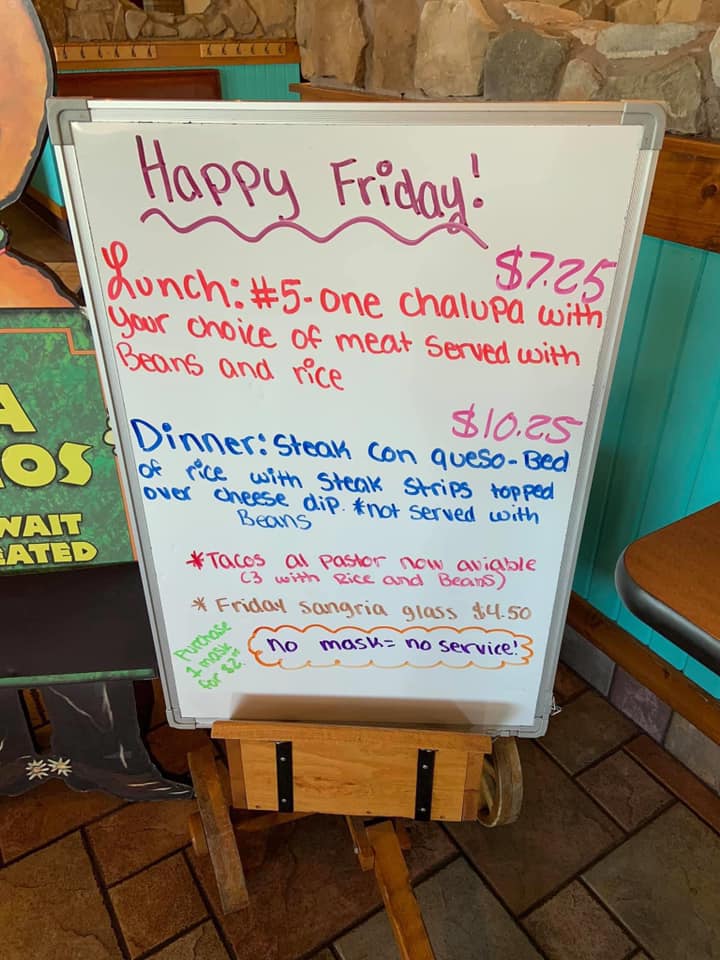 Happy Friday!
$7.25
Lunch: #5-one chalupa with
your choice of meat served with
Beans and rice
$10.25
Dinner: Steak con queso-Bed
of rice with steak strips topped
over cheese dip. *not served with
Beans
*Tacos al pastor now aviable
(3 with Rice and Beans)
* Friday sangria glass $4.50
Purchase
1 mask
for $2.
no mask= no service!
A
OS
WAIT
EATED